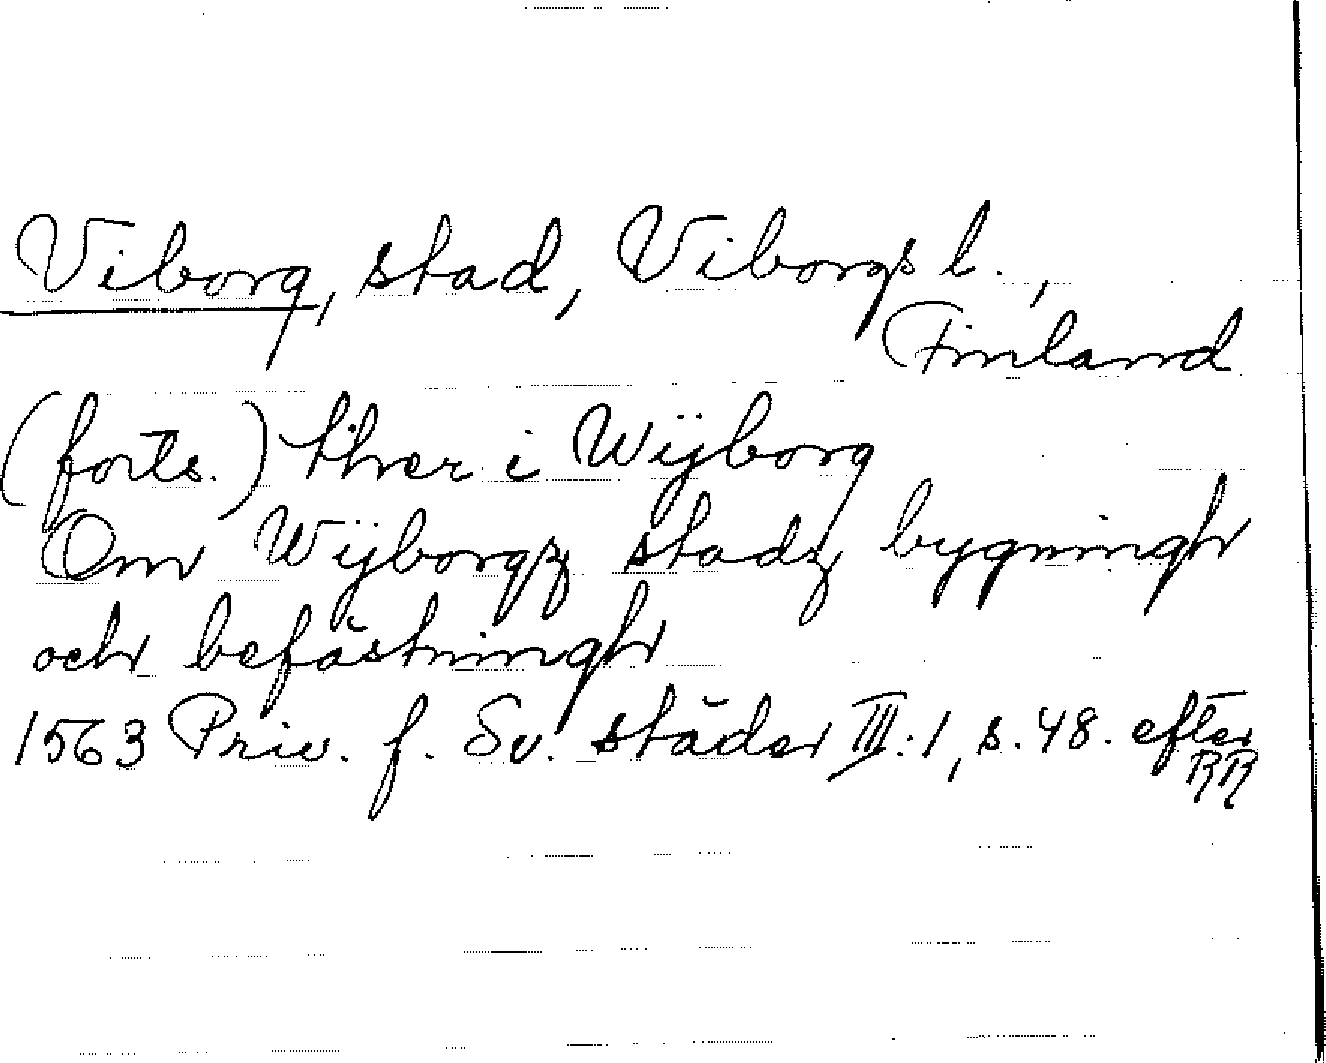 Viborg, stad, Viborgs l.,
Finland
(forts.) thver i Wÿborg
Om Wÿborgz stadz bygningh
och befästningh
1563 Priv. f. Sv. städer III:1, s. 48. efter
RR